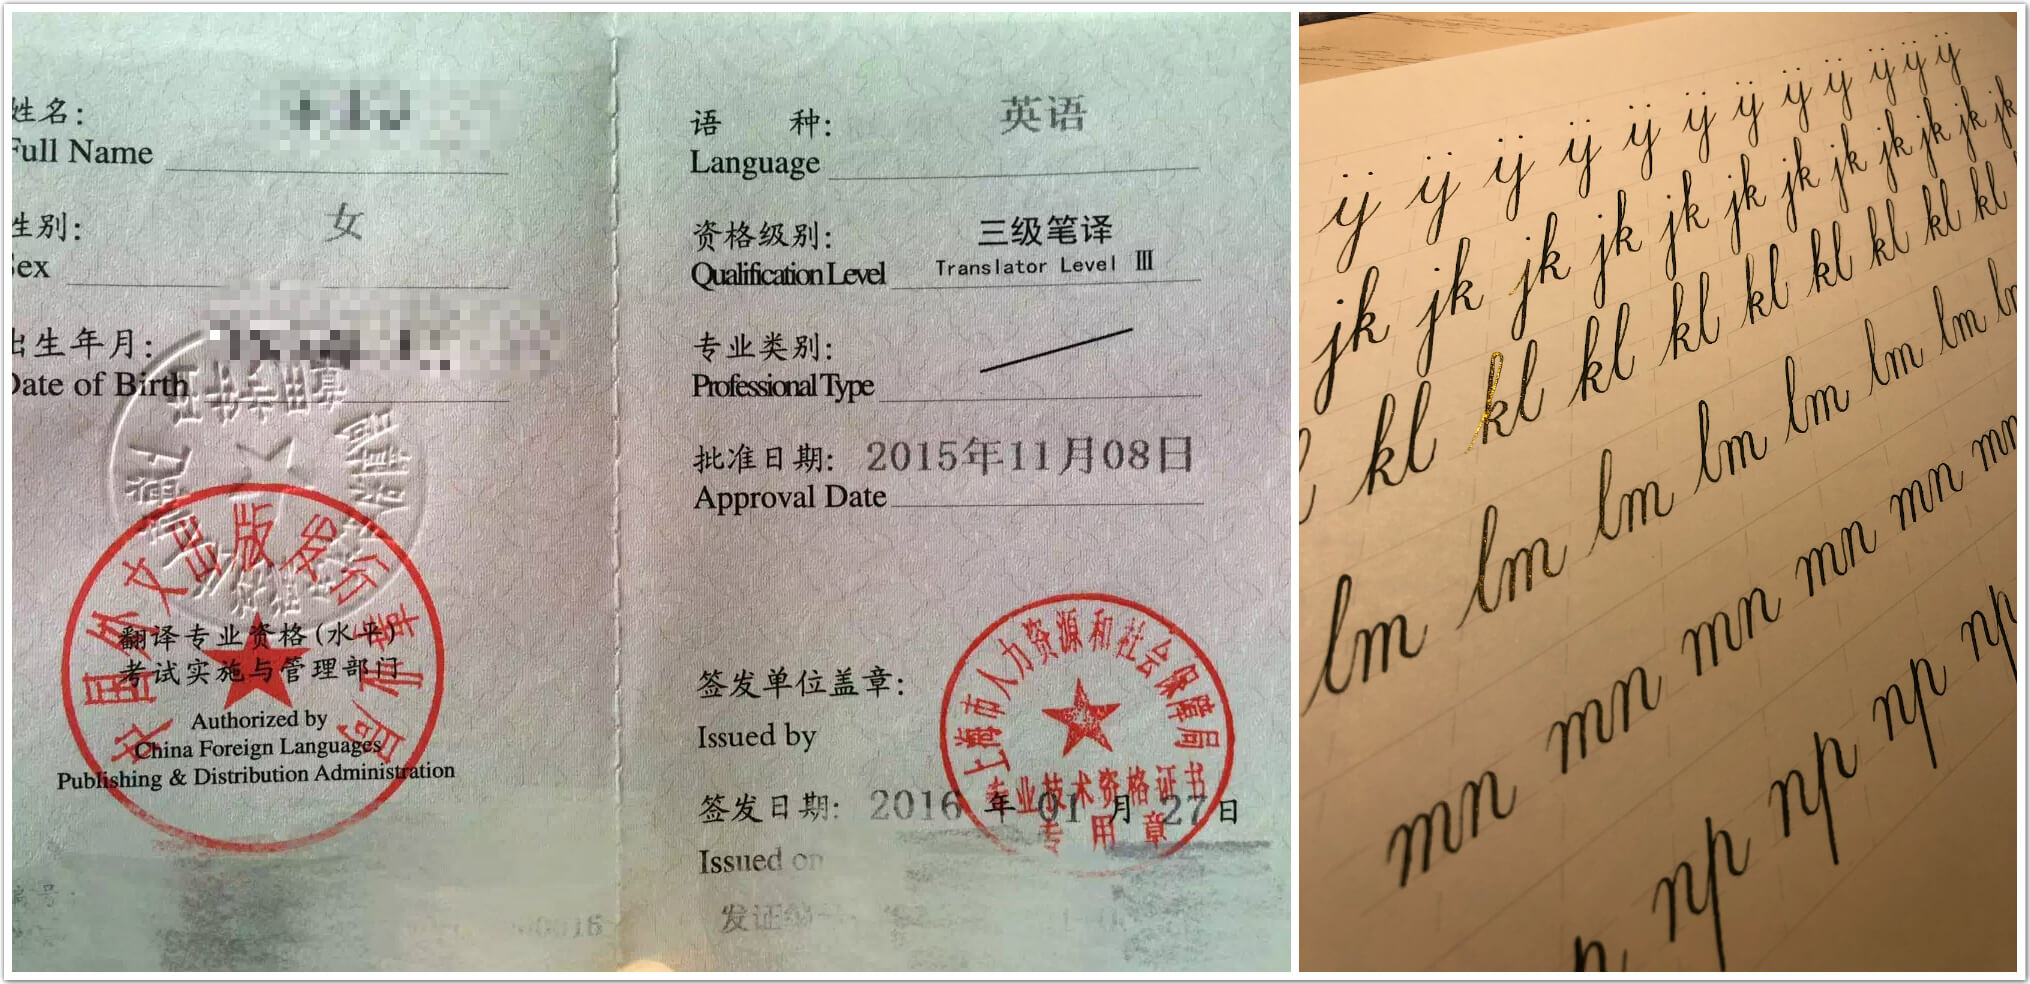 姓名:
Full Name
性别: 女
Sex
出生年月:
Date of Birth
中国外文出版发行
翻译专业资格(水平)
考试实施与管理部门
Authorized by
China Foreign Languages
Publishing & Distribution Administration
语 种: 英语
Language
资格级别: 三级笔译
Qualification Level Translator Level III
专业类别:
Professional Type
批准日期: 2015年11月08日
Approval Date
签发单位盖章:
Issued by
上海市人力资源和社会保障局
专业技术资格证书
专用章
签发日期: 2016 年 01 月 27 日
Issued on
ij ij ij ij ij ij ij ij ij ij ij ij
jk jk jk jk jk jk jk jk jk jk jk jk
kl kl kl kl kl kl kl kl kl kl
lm lm lm lm lm lm lm lm lm
mn mn mn mn mn mn mn
np np np np np